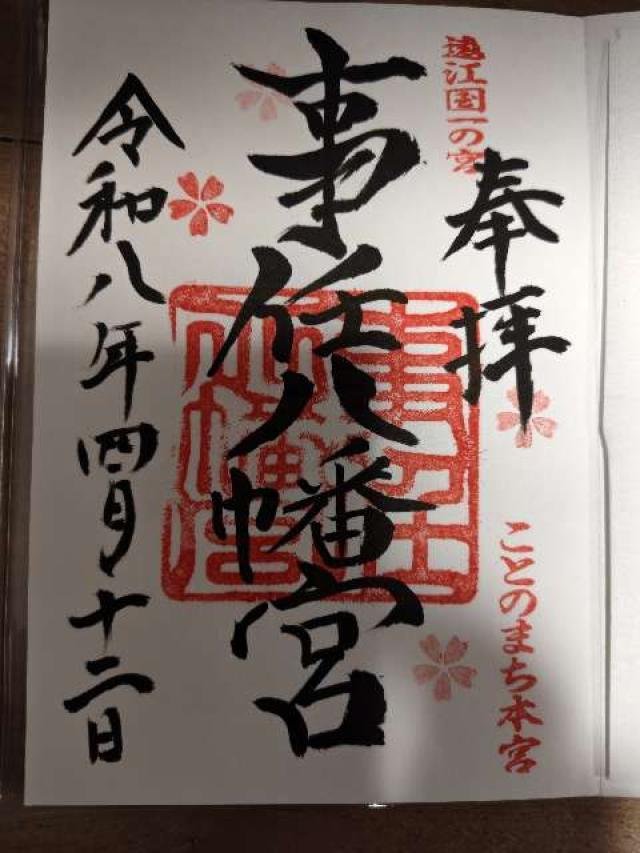 遠江国一の宮
奉拝
ことのまち本宮
事任八幡宮
令和八年四月十二日